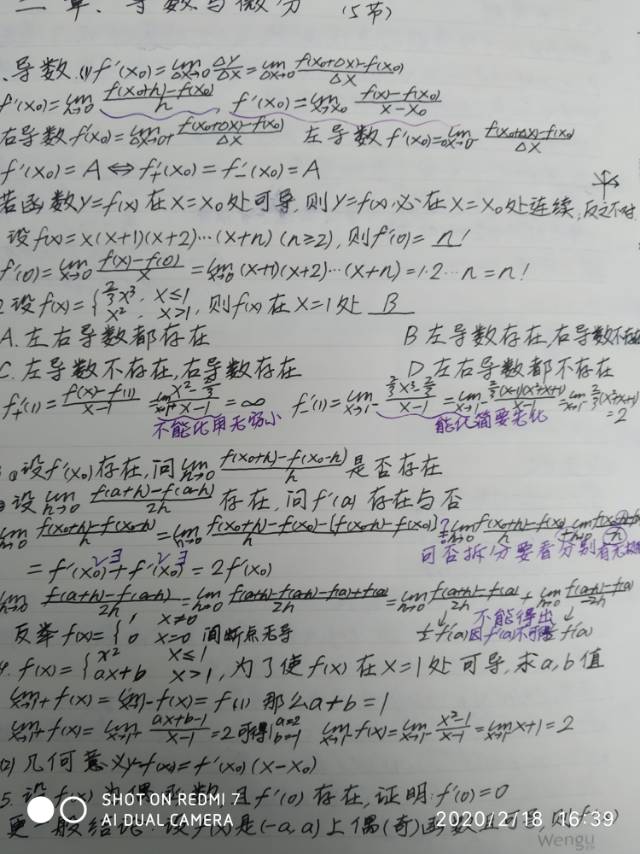 二章、导数与微分 (5节)
、导数.(1) f'(x₀)=lim Δx→0 Δy/Δx = lim Δx→0 (f(x₀+Δx)-f(x₀))/Δx
f'(x₀)=lim h→0 (f(x₀+h)-f(x₀))/h f'(x₀)=lim x→x₀ (f(x)-f(x₀))/(x-x₀)
右导数f'(x₀)=lim Δx→0+ (f(x₀+Δx)-f(x₀))/Δx 左导数 f'(x₀)=lim Δx→0- (f(x₀+Δx)-f(x₀))/Δx
f'(x₀)=A⇔f'₊(x₀)=f'₋(x₀)=A
若函数y=f(x)在x=x₀处可导,则y=f(x)必在x=x₀处连续,反之不对
设f(x)=x(x+1)(x+2)…(x+n)(n≥2),则f'(0)=n!
f'(0)=lim x→0 (f(x)-f(0))/x = lim x→0 (x+1)(x+2)…(x+n)=1·2…n=n!
2.设f(x)={⅔x³, x≤1
x², x>1, 则f(x)在x=1处 B
A.左右导数都存在 B左导数存在,右导数不存在
C.左导数不存在,右导数存在 D左右导数都不存在
f'₊(1)=(f(x)-f(1))/(x-1) lim x→1+ (x²-⅔)/(x-1)=∞ f'₋(1)=lim x→1- (⅔x³-⅔)/(x-1)=lim x→1- ⅔(x-1)(x²+x+1)/(x-1)=lim x→1- ⅔(x²+x+1)
=2
不能化用无穷小 能化简要先化
设f'(x₀)存在,问lim h→0 (f(x₀+h)-f(x₀-h))/h 是否存在
设lim h→0 (f(a+h)-f(a-h))/2h 存在,问f'(a)存在与否
lim h→0 (f(x₀+h)-f(x₀-h))/h = lim h→0 (f(x₀+h)-f(x₀)-(f(x₀-h)-f(x₀)))/h
可否拆分要看分别有无
=f'(x₀)+f'(x₀)=2f'(x₀)
lim h→0 (f(a+h)-f(a-h))/2h = lim h→0 (f(a+h)-f(a-h)-f(a)+f(a))/2h = lim h→0 (f(a+h)-f(a))/2h + lim h→0
不能得出
½f'(a)因f'(a)不可
反举f(x)={1 x≠0
0 x=0 间断点无导
4. f(x)={x² x≤1
ax+b x>1, 为了使f(x)在x=1处可导,求a,b值
lim x→1+ f(x)=lim x→1- f(x)=f(1) 那么a+b=1
lim x→1+ f(x)=lim x→1+ (ax+b-1)/(x-1)=2可得{a=2
b=-1 lim x→1- f(x)=lim x→1- (x²-1)/(x-1)=lim x→1- x+1=2
(2)几何意义y-f(x₀)=f'(x₀)(x-x₀)
5. 设f(x)为偶函数且f'(0)存在,证明:f'(0)=0
更一般结论:设f(x)是(-a,a)上偶(奇)函数且可导,则f'(x)
SHOT ON REDMI 7
AI DUAL CAMERA
2020/2/18 16:39
Wengu